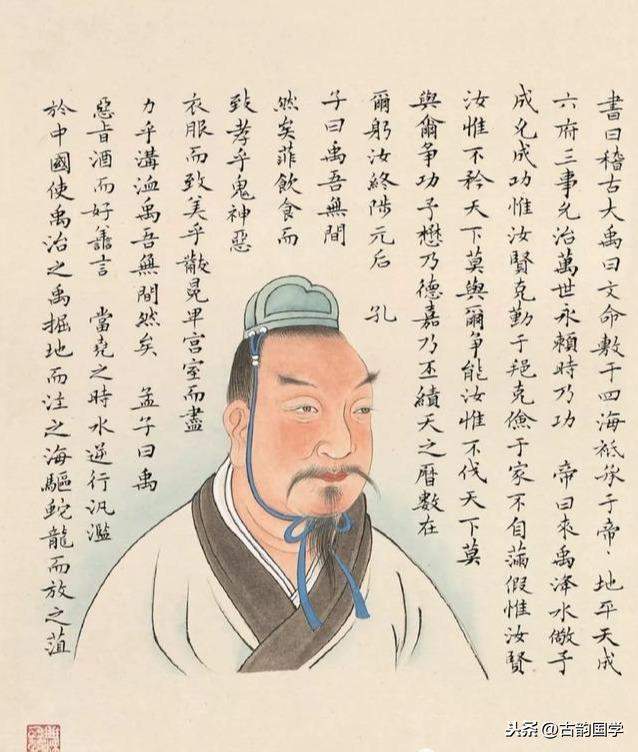 書曰稽古大禹曰文命敷于四海祗承于帝、地平天成
六府三事允治萬世永賴時乃功 帝曰來禹洚水儆予
成允成功惟汝賢克勤于邦克儉于家不自滿假惟汝賢
汝惟不矜天下莫與爾爭能汝惟不伐天下莫
與爾爭功予懋乃德嘉乃丕績天之曆數在
爾躬汝終陟元后 孔
子曰禹吾無間
然矣菲飲食而
致孝乎鬼神惡
衣服而致美乎黻冕卑宮室而盡
力乎溝洫禹吾無間然矣 孟子曰禹
惡旨酒而好善言 當堯之時水逆行汎濫
於中國使禹治之禹掘地而注之海驅蛇龍而放之菹
头条@古韵国学